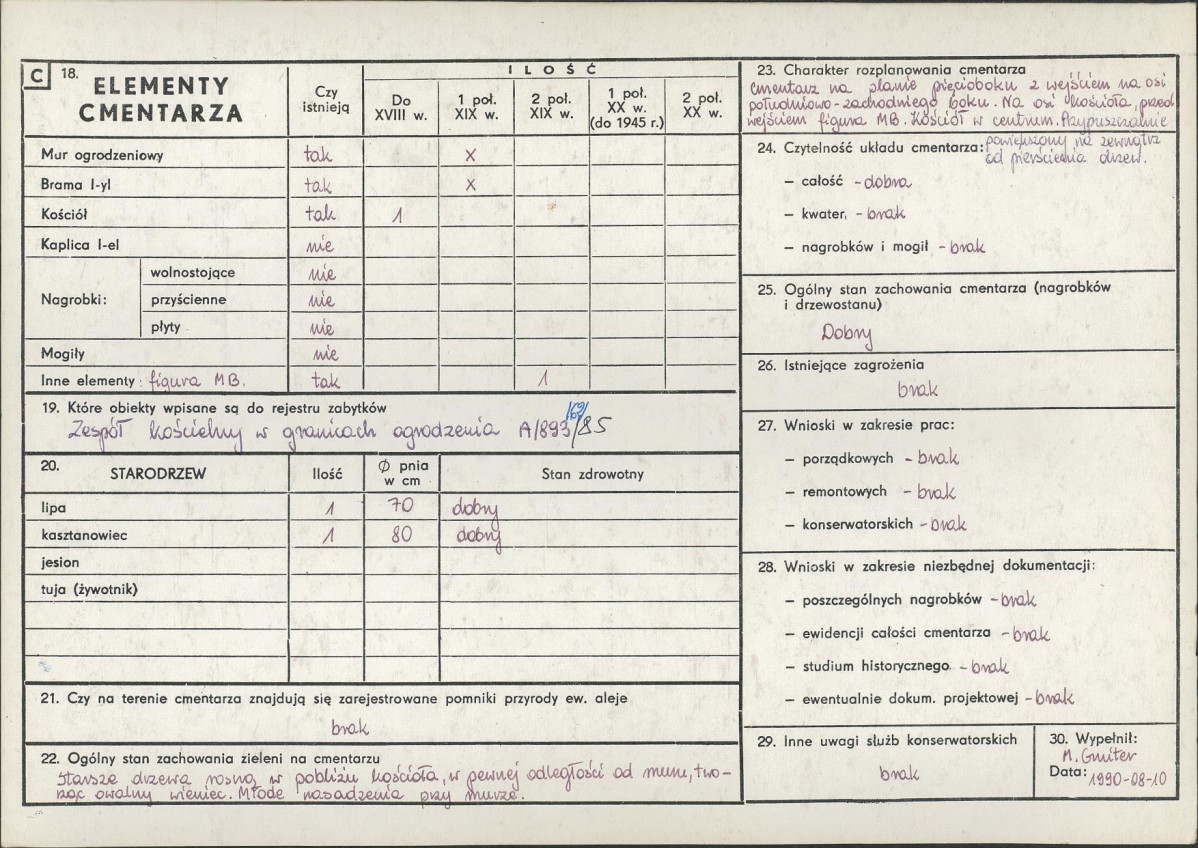 C 18. ELEMENTY
CMENTARZA
Czy
istnieją
ILOŚĆ
Do
XVIII w.
1 poł.
XIX w.
2 poł.
XIX w.
1 poł.
XX w.
(do 1945 r.)
2 poł.
XX w.
Mur ogrodzeniowy tak x
Brama l-yl tak x
Kościół tak 1
Kaplica l-el nie
Nagrobki:
wolnostojące nie
przyścienne nie
płyty nie
Mogiły nie
Inne elementy: figura MB. tak 1
19. Które obiekty wpisane są do rejestru zabytków
/69/
Zespół kościelny w granicach ogrodzenia A/893/85
20. STARODRZEW Ilość Ø pnia
w cm Stan zdrowotny
lipa 1 70 dobry
kasztanowiec 1 80 dobry
jesion
tuja (żywotnik)
21. Czy na terenie cmentarza znajdują się zarejestrowane pomniki przyrody ew. aleje
brak
22. Ogólny stan zachowania zieleni na cmentarzu
Starsze drzewa rosną w pobliżu kościoła, w pewnej odległości od muru, two-
rząc owalny wieniec. Młode nasadzenia przy murze.
23. Charakter rozplanowania cmentarza
cmentarz na planie pięcioboku z wejściem na osi
południowo-zachodniego boku. Na osi kościoła, przed
wejściem figura MB. Kościół w centrum. Przypuszczalnie
powiększony na zewnątrz
od pierścienia drzew.
24. Czytelność układu cmentarza:
– całość - dobra
– kwater, - brak
– nagrobków i mogił - brak
25. Ogólny stan zachowania cmentarza (nagrobków
i drzewostanu)
Dobry
26. Istniejące zagrożenia
brak
27. Wnioski w zakresie prac:
– porządkowych - brak
– remontowych - brak
– konserwatorskich - brak
28. Wnioski w zakresie niezbędnej dokumentacji:
– poszczególnych nagrobków - brak
– ewidencji całości cmentarza - brak
– studium historycznego - brak
– ewentualnie dokum. projektowej - brak
29. Inne uwagi służb konserwatorskich
brak
30. Wypełnił:
M. Gmiter
Data: 1990-08-10